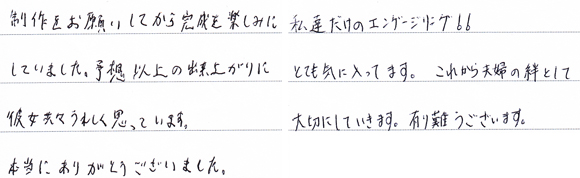 制作をお願いしてから完成を楽しみに
していました。予想以上の出来上がりに
彼女共々うれしく思っています。
本当にありがとうございました。
私達だけのエンゲージリング!!
とても気に入ってます。これから夫婦の絆として
大切にしていきます。有り難うございます。